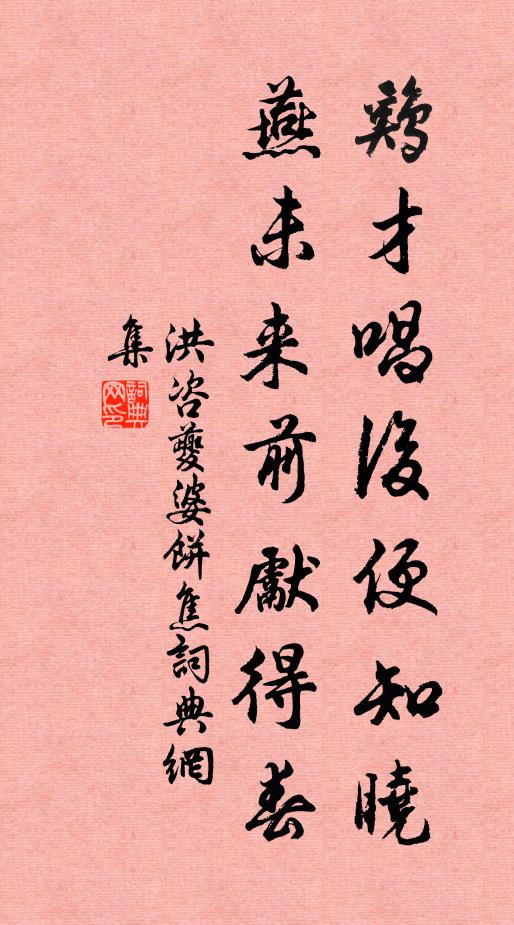 鷄才唱後便知曉
燕未来前獻得春
洪咨夔婆餅焦詞典網
集
詞典網印